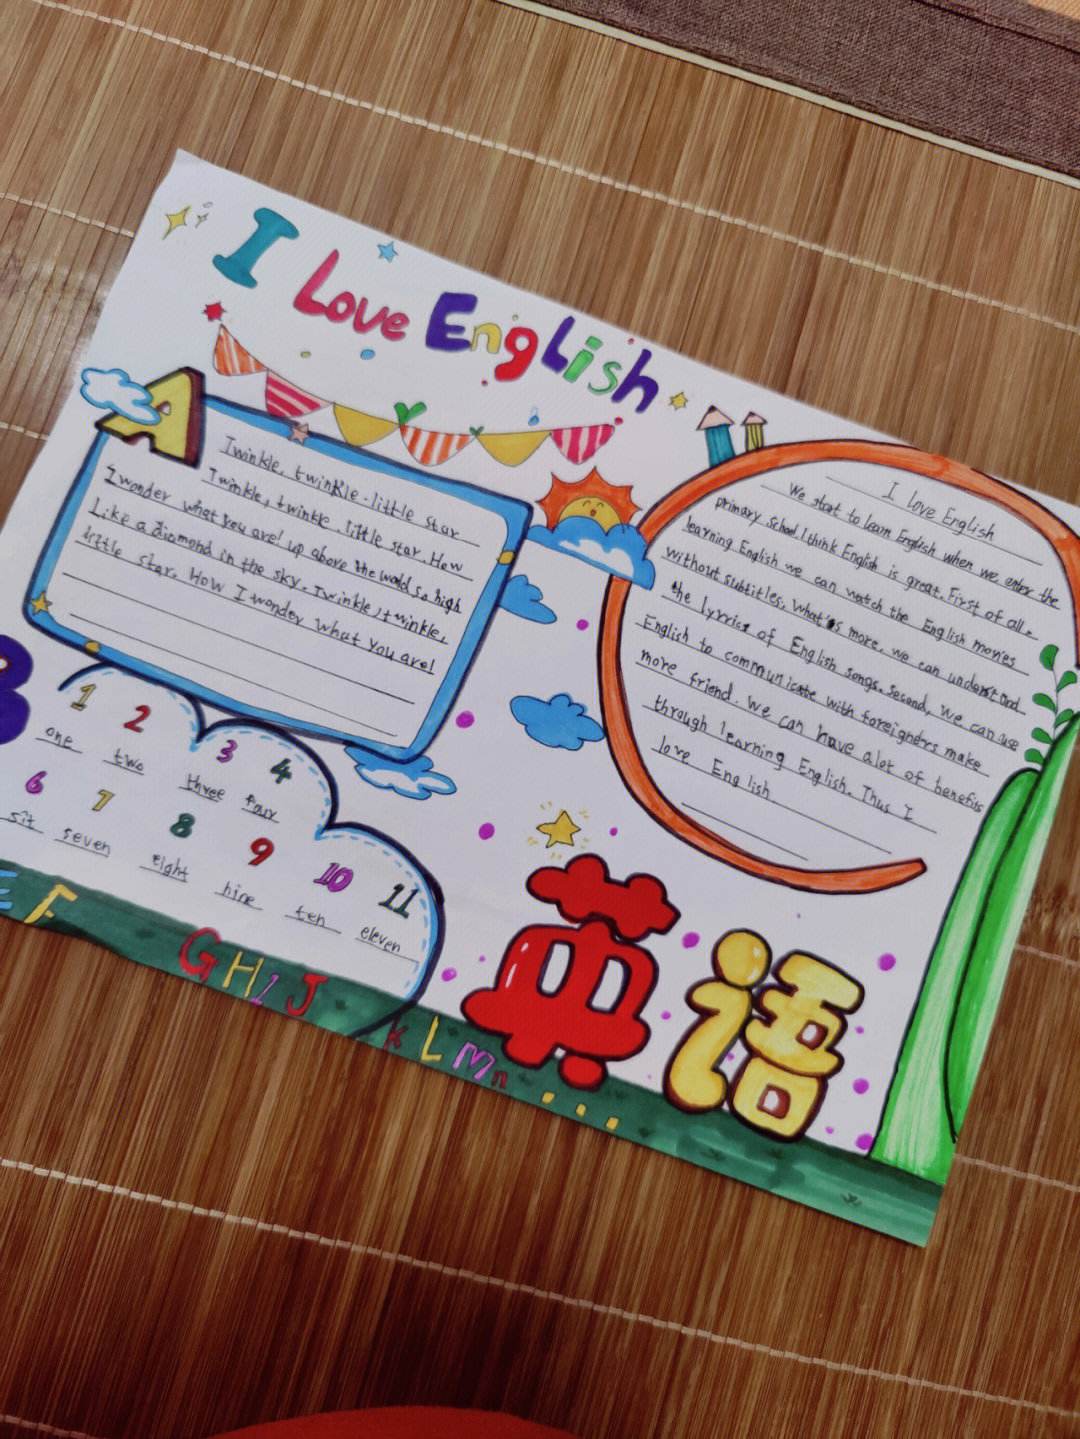 I Love English
A
Twinkle, twinkle - little star
Twinkle, twinkle little star. How
I wonder what you are! up above the world so high
Like a diamond in the sky. Twinkle, twinkle,
little star. How I wonder what you are!
I love English
We start to learn English when we enter the
primary school. I think English is great. First of all,
learning English we can watch the English movies
without subtitles. What's more, we can understand
the lyrics of English songs. Second, we can use
English to communicate with foreigners make
more friend. We can have alot of benefits
through learning English. Thus I
love English
B
1 2 3 4
one two three four
6 7 8 9 10 11
sit seven eight nine ten eleven
E F G H I J K L M n ...
英语